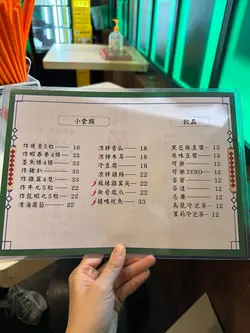 小食類
炸燒賣5粒 18
炸蝦卷4條 33
墨魚條4條 33
炸豬扒 33
炸雞翼2隻 33
炸牛丸5粒 22
炸龍蝦丸5粒 22
清湯蘿蔔 22
涼拌青瓜 18
涼拌木耳 18
冷豆腐 18
涼拌雞絲 22
麻辣雞翼尖 22
麻香鳳爪 22
辣味魷魚 33
飲品
黑芝麻豆漿 13
原味豆漿 12
可樂 12
可樂ZERO 12
雪碧 12
芬達 12
忌廉 12
烏龍冷泡茶 12
茉莉冷泡茶 12